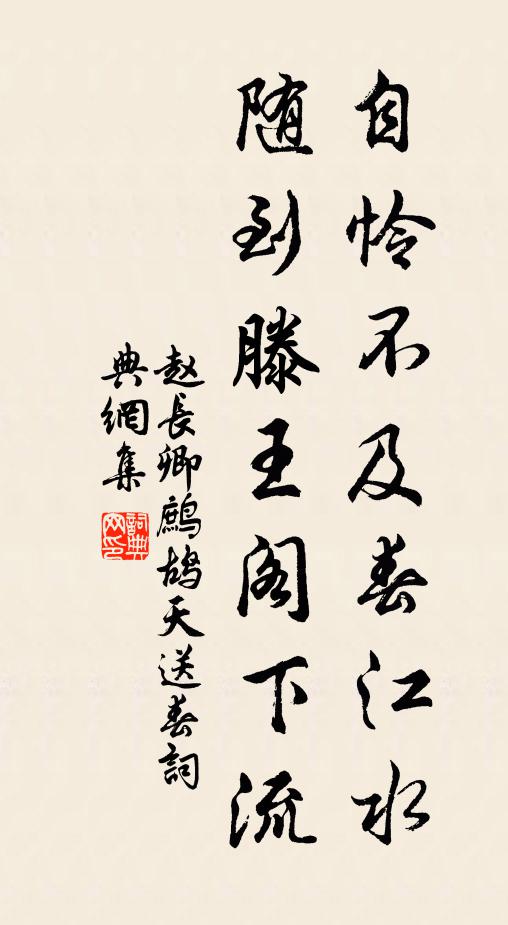 自怜不及春江水
随到滕王阁下流
赵長卿鷓鴣天送春詞
典網集
詞典
网印